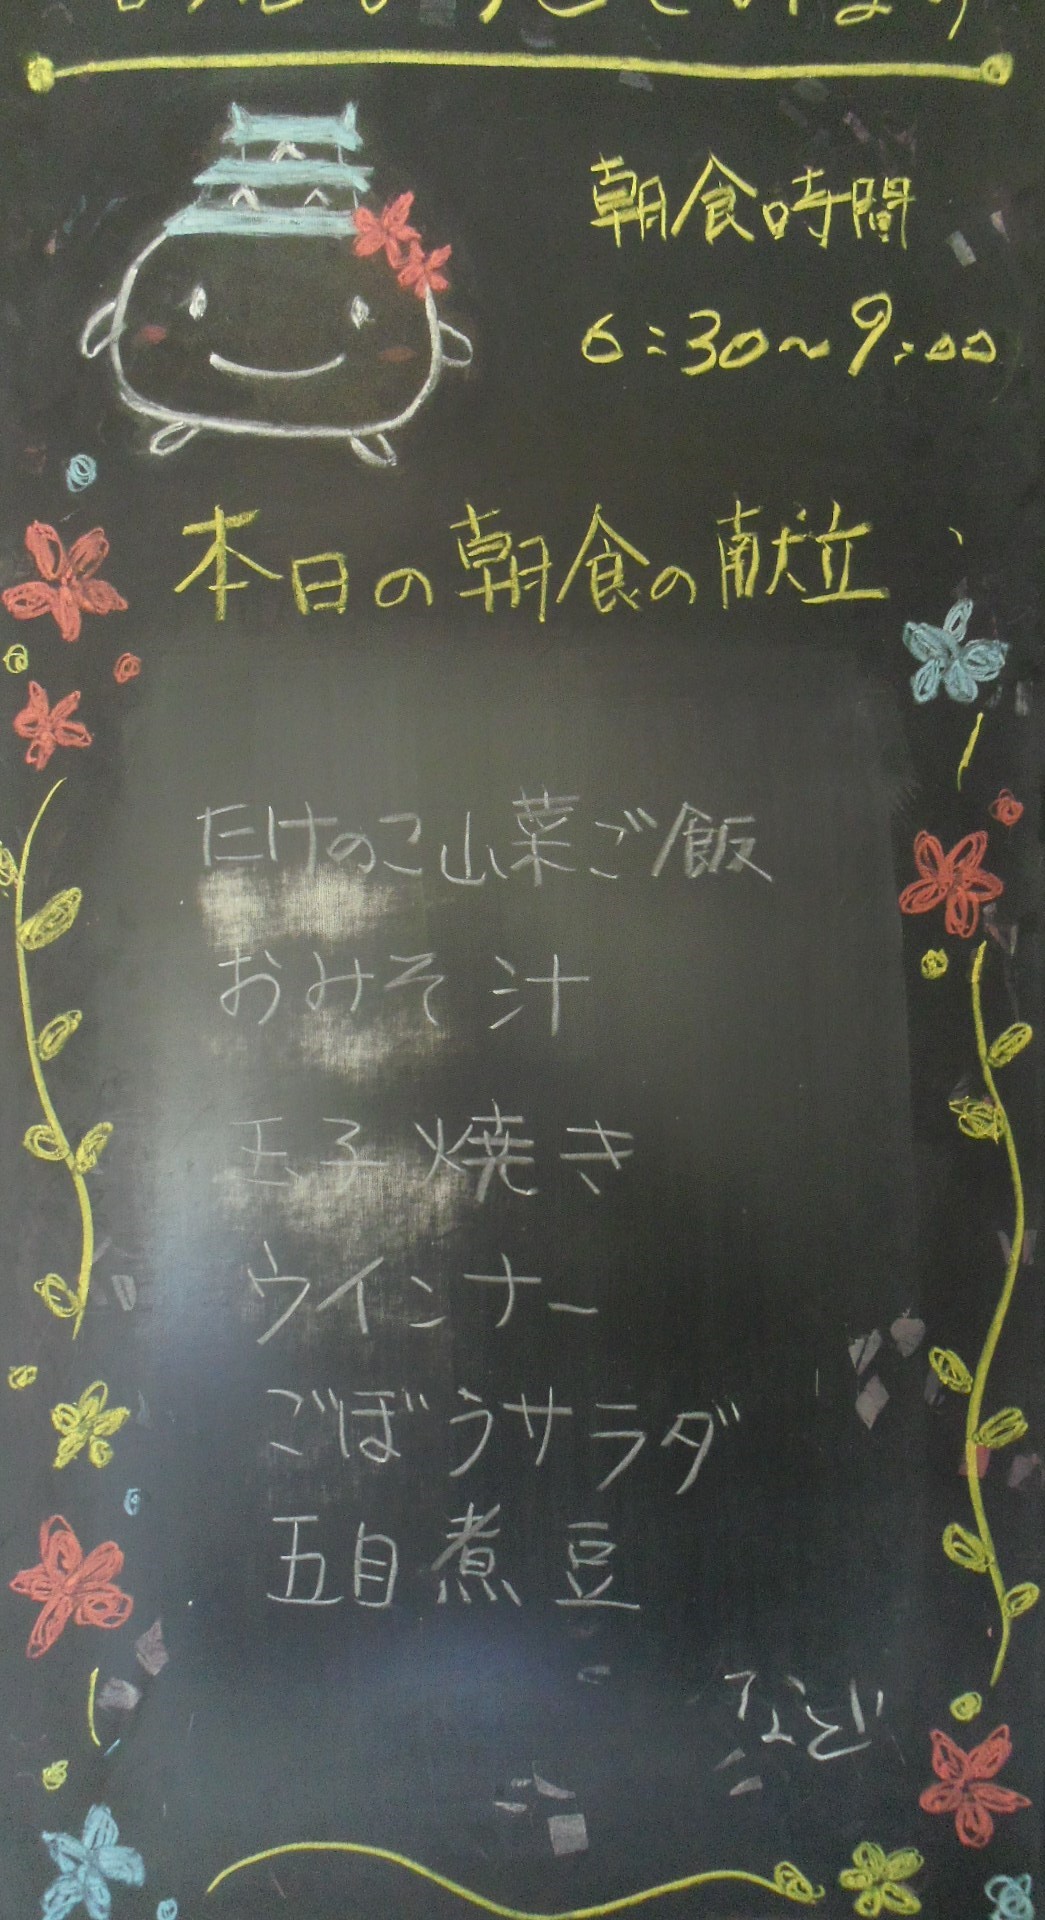 朝食時間
6:30~9:00
本日の朝食の献立
たけのこ山菜ご飯
おみそ汁
玉子焼き
ウインナー
ごぼうサラダ
五目煮豆
など